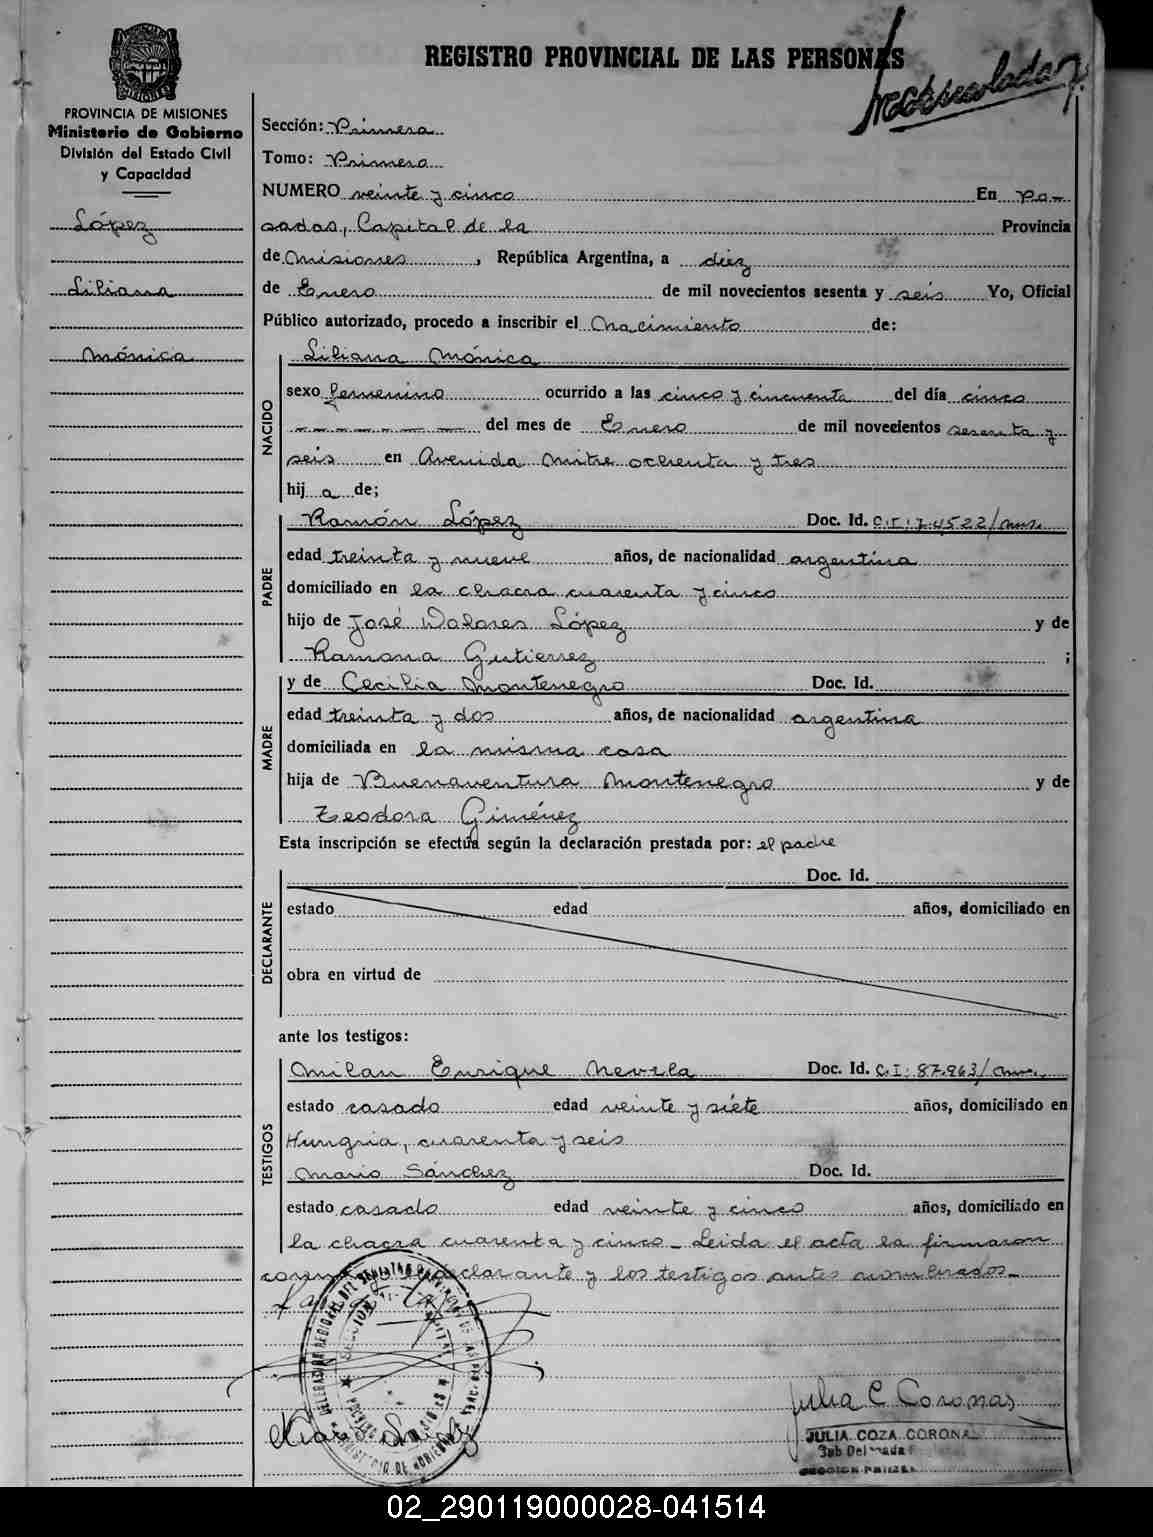 REGISTRO PROVINCIAL DE LAS PERSONAS
PROVINCIA DE MISIONES
Ministerio de Gobierno
División del Estado Civil
y Capacidad
López
Liliana
Mónica
Sección: Primera
Tomo: Primero
NUMERO veinte y cinco En Po-
sadas, Capital de la Provincia
de Misiones, República Argentina, a diez
de Enero de mil novecientos sesenta y seis Yo, Oficial
Público autorizado, procedo a inscribir el Nacimiento de:
NACIDO
Liliana Mónica
sexo femenino ocurrido a las cinco y cincuenta del día cinco
del mes de Enero de mil novecientos sesenta y
seis en Avenida Mitre ochenta y tres
hij a de;
PADRE
Ramón López Doc. Id. C.I: 74522/mns.
edad treinta y nueve años, de nacionalidad argentina
domiciliado en la chacra cuarenta y cinco
hijo de José Dolores López y de
Ramona Gutierrez ;
MADRE
y de Cecilia Montenegro Doc. Id.
edad treinta y dos años, de nacionalidad argentina
domiciliada en la misma casa
hija de Buenaventura Montenegro y de
Teodora Giménez
Esta inscripción se efectúa según la declaración prestada por: el padre
DECLARANTE
Doc. Id.
estado edad años, domiciliado en
obra en virtud de
ante los testigos:
TESTIGOS
Milan Enrique Nevela Doc. Id. C.I: 87.963/mns.
estado casado edad veinte y siéte años, domiciliado en
Hungria, cuarenta y seis
Mario Sánchez Doc. Id.
estado casado edad veinte y cinco años, domiciliado en
la chacra cuarenta y cinco_ Leida el acta la firmaron
declarante y los testigos antes nombrados_
Julia C Coronas
JULIA COZA CORONA
Sub Del
SECCION
02_290119000028-041514